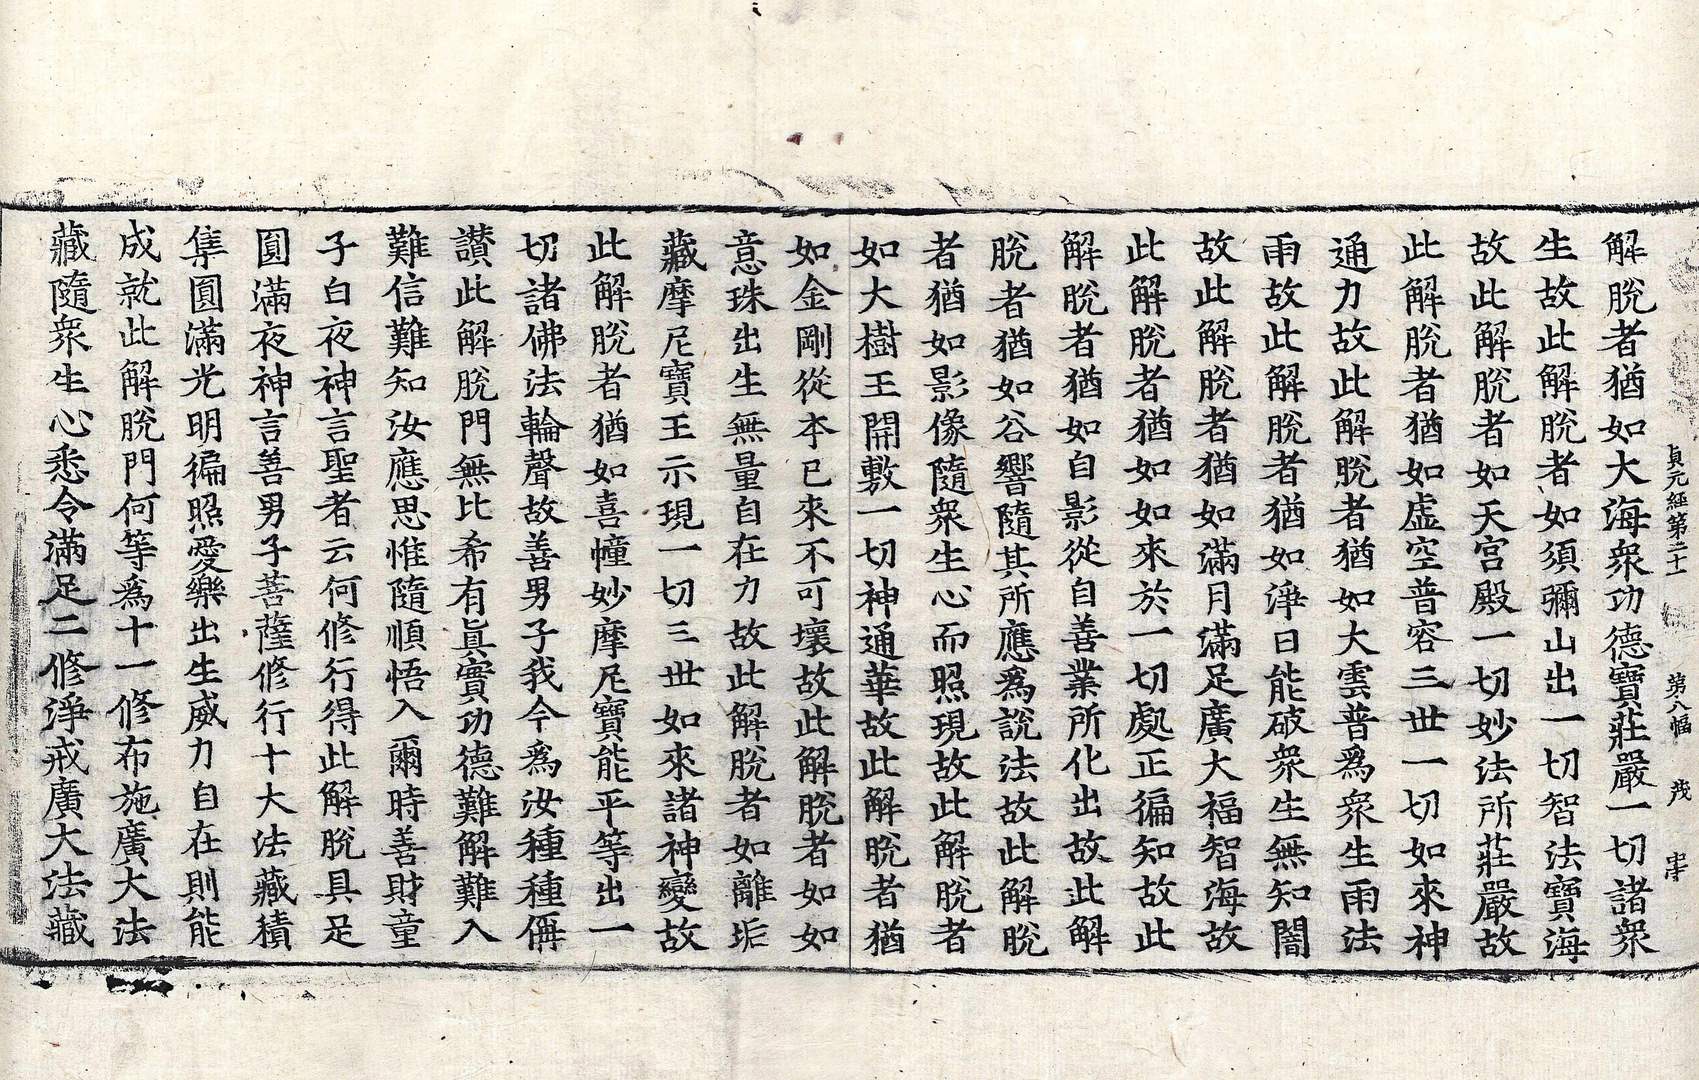 貞元經第二十一 第八幅 茂
解脫者猶如大海衆功德寶莊嚴一切諸衆
生故此解脫者如須彌山出一切智法寶海
故此解脫者如天宮殿一切妙法所莊嚴故
此解脫者猶如虛空普容三世一切如來神
通力故此解脫者猶如大雲普爲衆生雨法
雨故此解脫者猶如淨日能破衆生無知闇
故此解脫者猶如滿月滿足廣大福智海故
此解脫者猶如如來於一切處正徧知故此
解脫者猶如自影從自善業所化出故此解
脫者猶如谷響隨其所應爲說法故此解脫
者猶如影像隨衆生心而照現故此解脫者
如大樹王開敷一切神通華故此解脫者猶
如金剛從本已來不可壞故此解脫者如如
意珠出生無量自在力故此解脫者如離垢
藏摩尼寶王示現一切三世如來諸神變故
此解脫者猶如喜幢妙摩尼寶能平等出一
切諸佛法輪聲故善男子我今爲汝種種偁
讚此解脫門無比希有眞實功德難解難入
難信難知汝應思惟隨順悟入爾時善財童
子白夜神言聖者云何修行得此解脫具足
圓滿夜神言善男子菩薩修行十大法藏積
集圓滿光明徧照愛樂出生威力自在則能
成就此解脫門何等爲十一修布施廣大法
藏隨衆生心悉令滿足二修淨戒廣大法藏